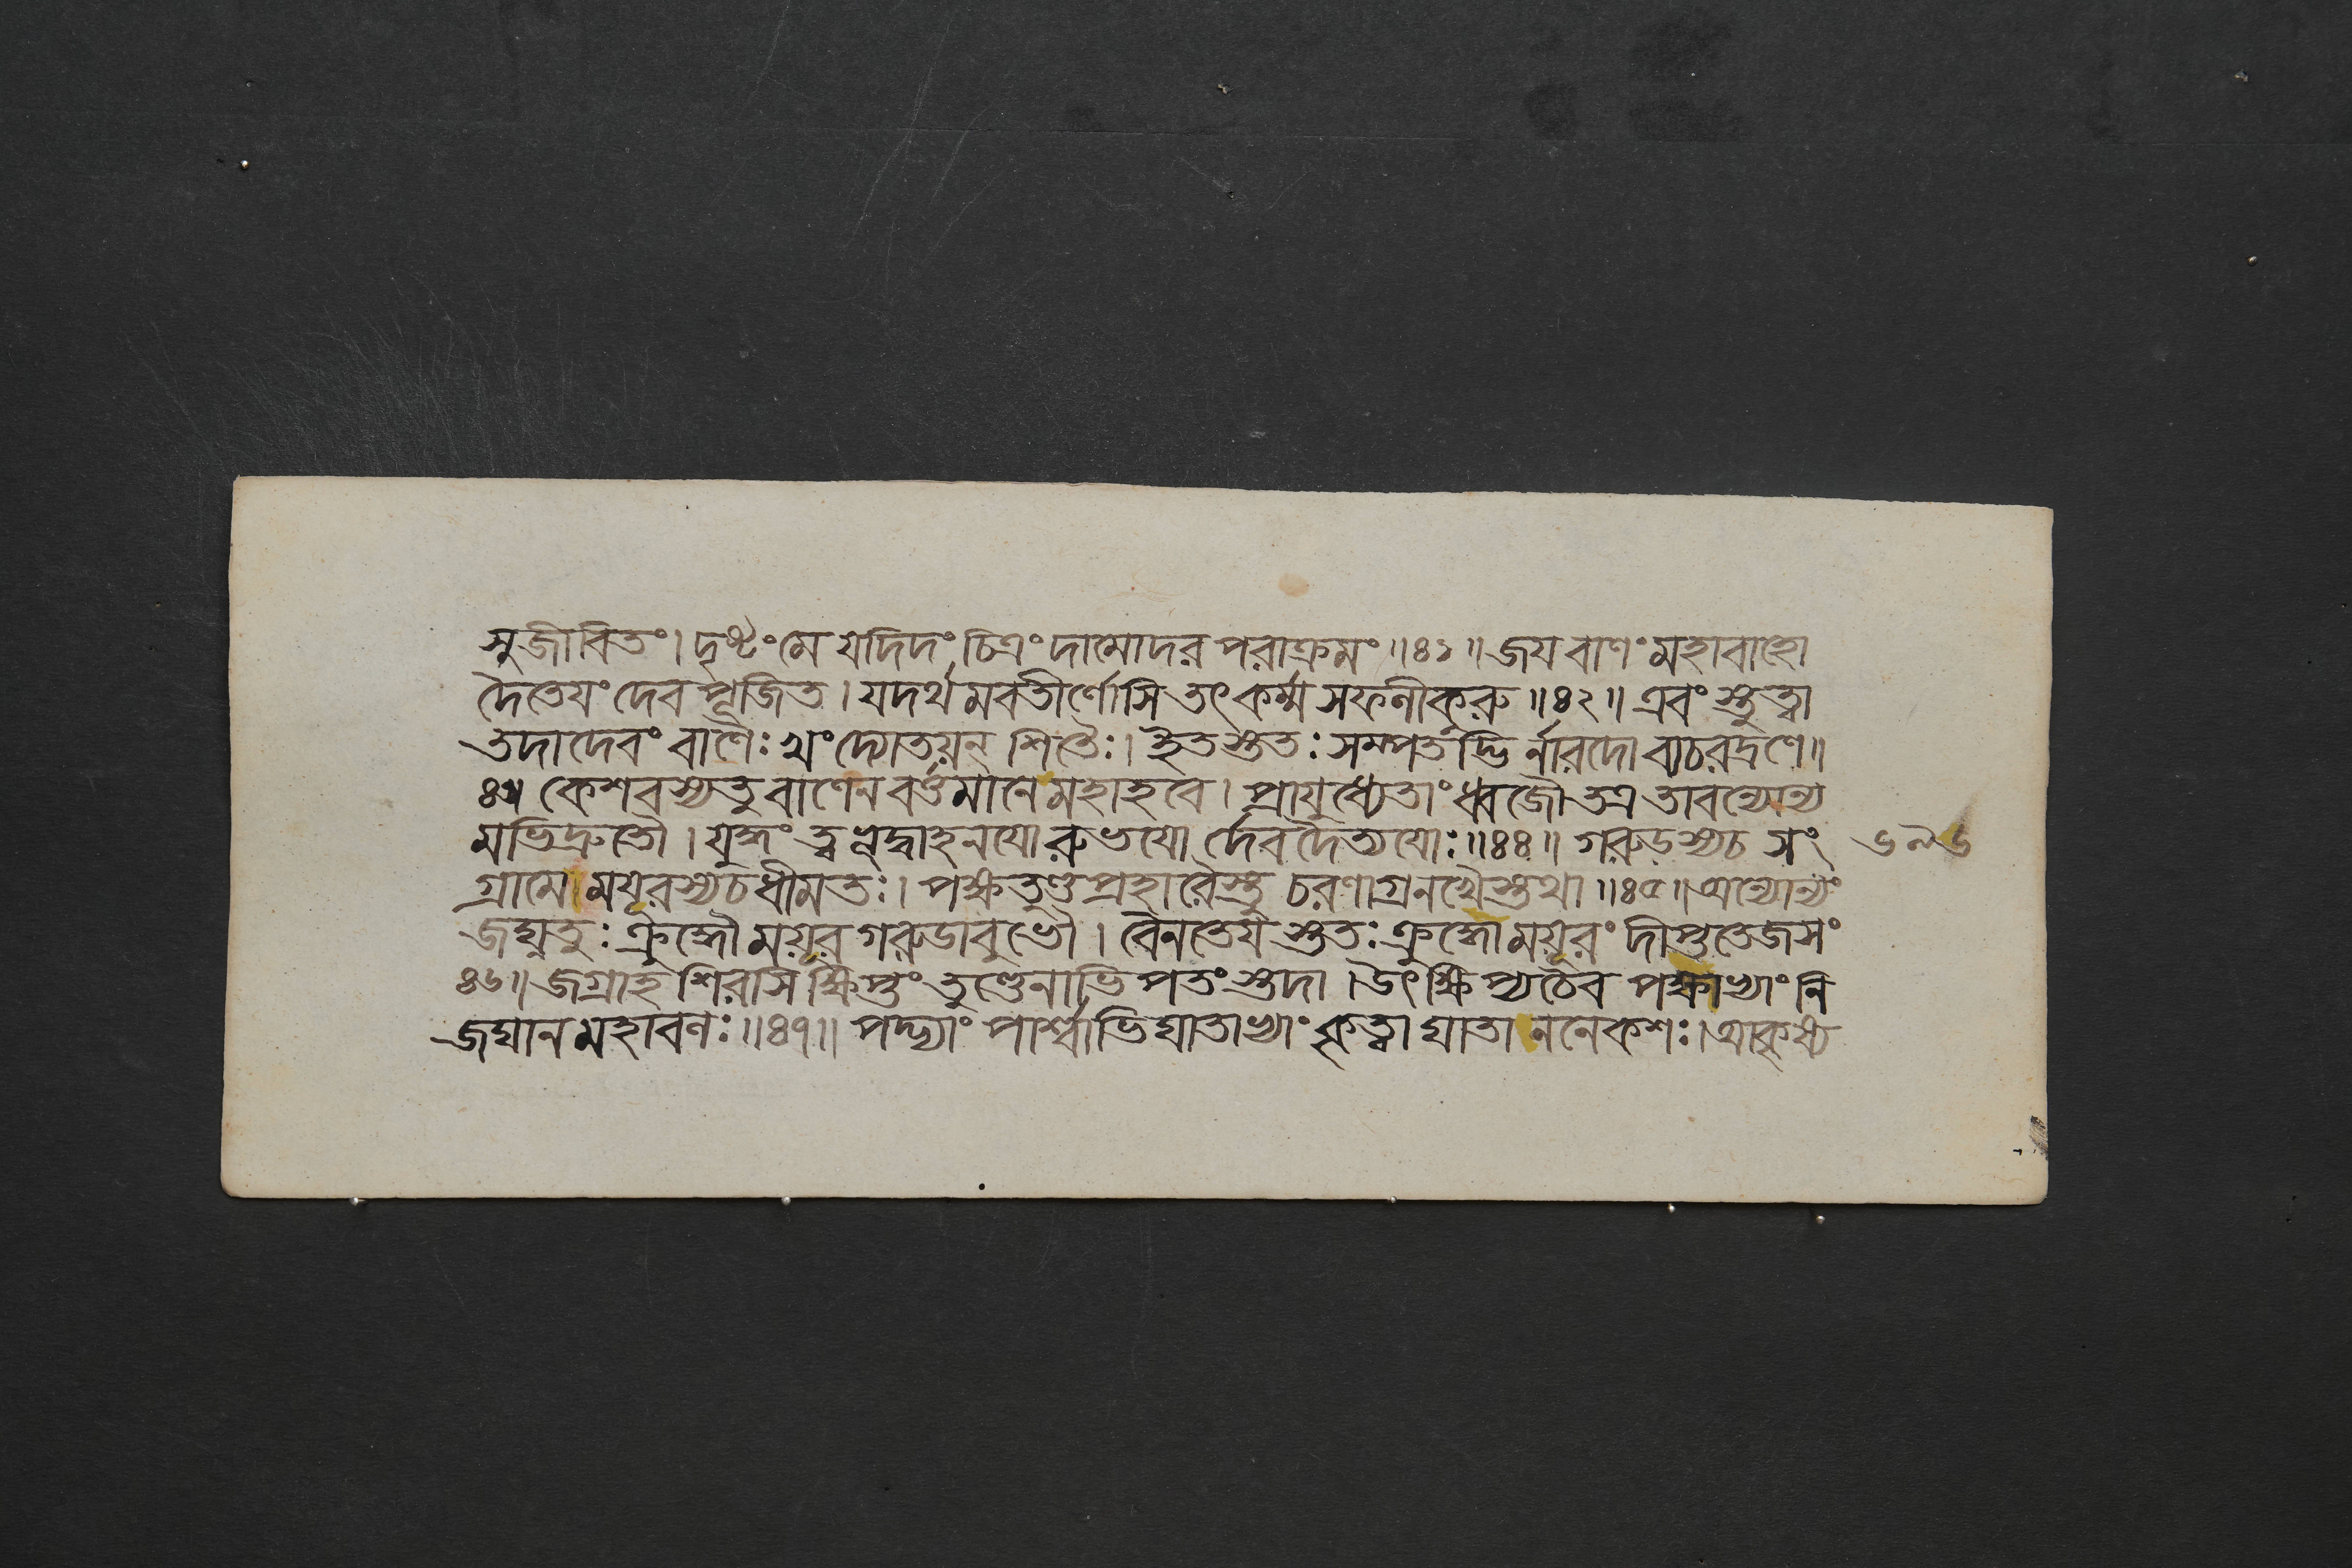 সুজীবিতং। দৃষ্টং মে যদিদং চিত্রং দামোদর পরাক্রমং॥৪১॥ জয বাণং মহাবাহো
দৈতেযং দেব পূজিত। যদর্থমবতীর্ণোসি তৎ কর্ম্ম সফলীকুরু॥৪২॥ এবং স্তুত্বা
তদা দেবং বাণৈঃ খং দ্যোতয়ন্ শিতৈঃ। ইতস্ততঃ সম্পতদ্ভি র্নারদো ব্যচরদ্রণে॥
৪৩॥ কেশবস্যতু বাণেন বর্ত্তমানে মহাহবে। প্রাযুধ্যেতাং ধ্বজৌ তত্র তাবন্যোন্য
মভিদ্রুতৌ। যুদ্ধং ত্বভূদ্বাহনযো রুভযো র্দেব দৈত্যযোঃ॥৪৪॥ গরুডস্যচ সং
গ্রামো ময়ূরস্যচ ধীমতঃ। পক্ষতুণ্ড প্রহারৈস্তু চরণাগ্রনখৈস্তথা॥৪৫॥ অন্যোন্যং
জঘ্নতুঃ ক্রুদ্ধৌ ময়ূর গরুডাবুভৌ। বৈনতেয স্ততঃ ক্রুদ্ধো ময়ূরং দীপ্ততেজসং
৪৬॥ জগ্রাহ শিরসি ক্ষিপ্তং তুণ্ডেনাভি পতংস্তদা। উৎক্ষিপ্যচৈব পক্ষাভ্যাং নি
জঘান মহাবলঃ॥৪৭॥ পদ্ভ্যাং পার্শ্বাভিঘাতাভ্যাং কৃত্বা ঘাতা ননেকশঃ। আকৃষ্য